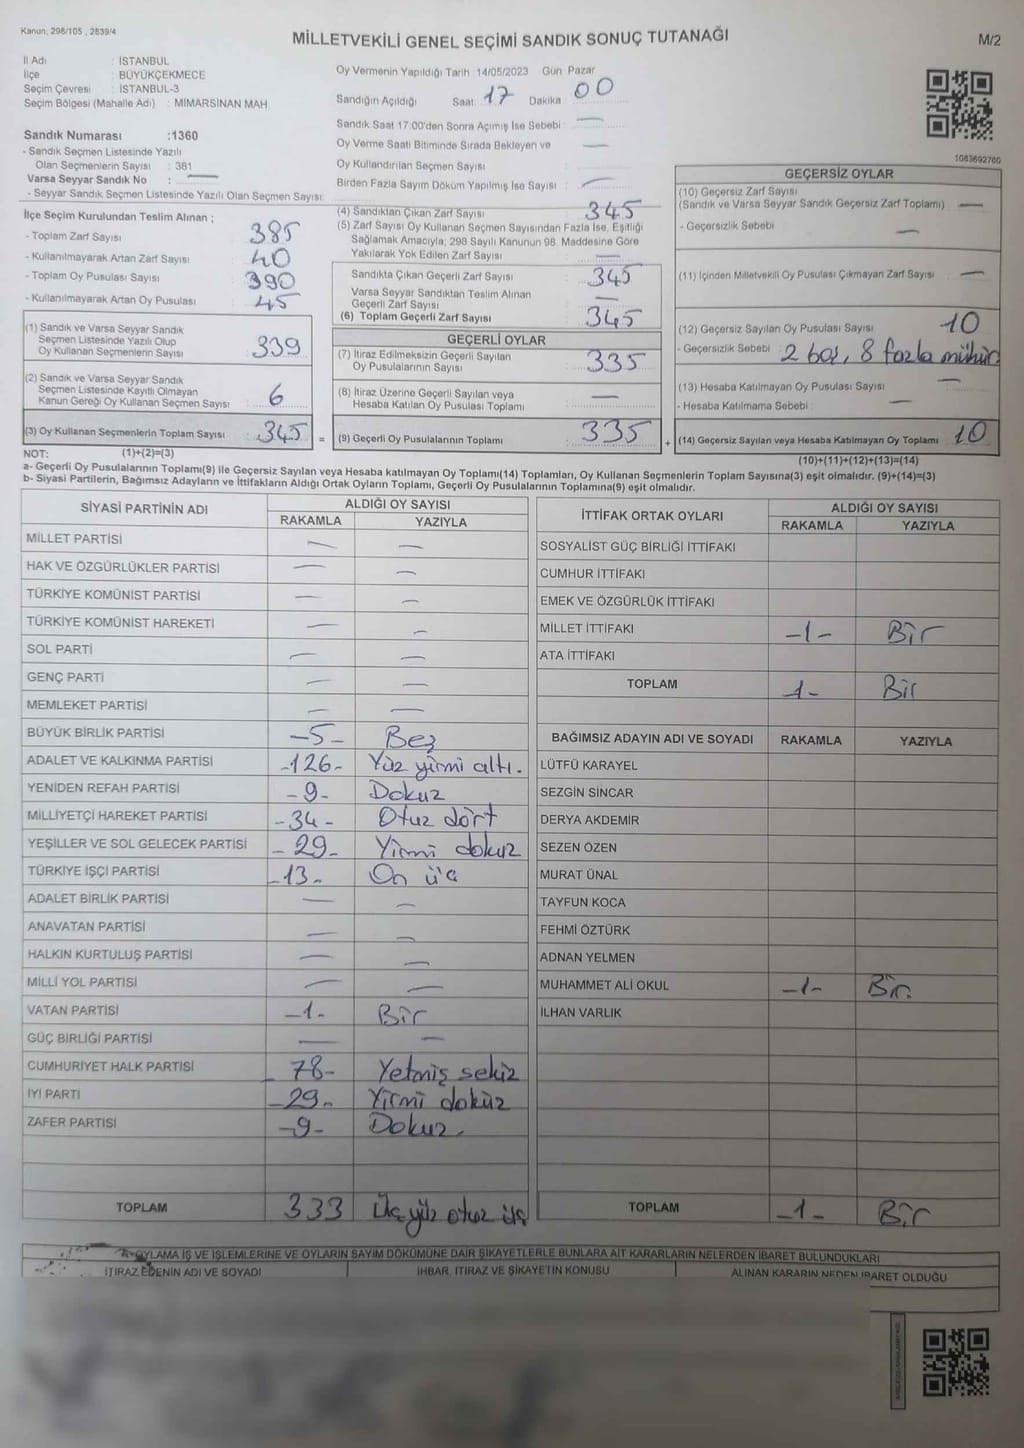 Kanun, 298/105 , 2839/4
MİLLETVEKİLİ GENEL SEÇİMİ SANDIK SONUÇ TUTANAĞI
M/2
İl Adı : İSTANBUL
İlçe : BÜYÜKÇEKMECE
Seçim Çevresi : İSTANBUL-3
Seçim Bölgesi (Mahalle Adı) : MİMARSİNAN MAH.
Sandık Numarası :1360
- Sandık Seçmen Listesinde Yazılı
Olan Seçmenlerin Sayısı : 381
Varsa Seyyar Sandık No : —
- Seyyar Sandık Seçmen Listesinde Yazılı Olan Seçmen Sayısı:
Oy Vermenin Yapıldığı Tarih :14/05/2023 Gün Pazar
Sandığın Açıldığı Saat: 17 Dakika 00
Sandık Saat 17:00'den Sonra Açımış İse Sebebi : —
Oy Verme Saati Bitiminde Sırada Bekleyen ve —
Oy Kullandırılan Seçmen Sayısı
Birden Fazla Sayım Döküm Yapılmış İse Sayısı : —
1083692760
İlçe Seçim Kurulundan Teslim Alınan ;
- Toplam Zarf Sayısı : 385
- Kullanılmayarak Artan Zarf Sayısı : 40
- Toplam Oy Pusulası Sayısı : 390
- Kullanılmayarak Artan Oy Pusulası : 45
(1) Sandık ve Varsa Seyyar Sandık
Seçmen Listesinde Yazılı Olup
Oy Kullanan Seçmenlerin Sayısı : 339
(2) Sandık ve Varsa Seyyar Sandık
Seçmen Listesinde Kayıtlı Olmayan
Kanun Gereği Oy Kullanan Seçmen Sayısı : 6
(3) Oy Kullanan Seçmenlerin Toplam Sayısı : 345
(1)+(2)=(3)
(4) Sandıktan Çıkan Zarf Sayısı : 345
(5) Zarf Sayısı Oy Kullanan Seçmen Sayısından Fazla İse, Eşitliği
Sağlamak Amacıyla; 298 Sayılı Kanunun 98. Maddesine Göre
Yakılarak Yok Edilen Zarf Sayısı : —
Sandıkta Çıkan Geçerli Zarf Sayısı : 345
Varsa Seyyar Sandıktan Teslim Alınan
Geçerli Zarf Sayısı : —
(6) Toplam Geçerli Zarf Sayısı : 345
GEÇERLİ OYLAR
(7) İtiraz Edilmeksizin Geçerli Sayılan
Oy Pusulalarının Sayısı : 335
(8) İtiraz Üzerine Geçerli Sayılan veya
Hesaba Katılan Oy Pusulası Toplamı : —
= (9) Geçerli Oy Pusulalarının Toplamı : 335 +
GEÇERSİZ OYLAR
(10) Geçersiz Zarf Sayısı
(Sandık ve Varsa Seyyar Sandık Geçersiz Zarf Toplamı) : —
- Geçersizlik Sebebi : —
(11) İçinden Milletvekili Oy Pusulası Çıkmayan Zarf Sayısı : —
(12) Geçersiz Sayılan Oy Pusulası Sayısı : 10
- Geçersizlik Sebebi : 2 boş, 8 fazla mühür
(13) Hesaba Katılmayan Oy Pusulası Sayısı : —
- Hesaba Katılmama Sebebi : —
(14) Geçersiz Sayılan veya Hesaba Katılmayan Oy Toplamı : 10
(10)+(11)+(12)+(13)=(14)
NOT:
a- Geçerli Oy Pusulalarının Toplamı(9) ile Geçersiz Sayılan veya Hesaba katılmayan Oy Toplamı(14) Toplamları, Oy Kullanan Seçmenlerin Toplam Sayısına(3) eşit olmalıdır. (9)+(14)=(3)
b- Siyasi Partilerin, Bağımsız Adayların ve İttifakların Aldığı Oyların Toplamı, Geçerli Oy Pusulalarının Toplamına(9) eşit olmalıdır.
SİYASİ PARTİNİN ADI ALDIĞI OY SAYISI
RAKAMLA YAZIYLA
MİLLET PARTİSİ — —
HAK VE ÖZGÜRLÜKLER PARTİSİ — —
TÜRKİYE KOMÜNİST PARTİSİ — —
TÜRKİYE KOMÜNİST HAREKETİ — —
SOL PARTİ — —
GENÇ PARTİ — —
MEMLEKET PARTİSİ — —
BÜYÜK BİRLİK PARTİSİ -5- Beş
ADALET VE KALKINMA PARTİSİ -126- Yüz yirmi altı.
YENİDEN REFAH PARTİSİ -9- Dokuz
MİLLİYETÇİ HAREKET PARTİSİ -34- Otuz dört
YEŞİLLER VE SOL GELECEK PARTİSİ -29- Yirmi dokuz
TÜRKİYE İŞÇİ PARTİSİ -13- On üç
ADALET BİRLİK PARTİSİ — —
ANAVATAN PARTİSİ — —
HALKIN KURTULUŞ PARTİSİ — —
MİLLİ YOL PARTİSİ — —
VATAN PARTİSİ -1- Bir
GÜÇ BİRLİĞİ PARTİSİ — —
CUMHURİYET HALK PARTİSİ -78- Yetmiş sekiz
İYİ PARTİ -29- Yirmi dokuz
ZAFER PARTİSİ -9- Dokuz
TOPLAM 333 Üç yüz otuz üç
İTTİFAK ORTAK OYLARI ALDIĞI OY SAYISI
RAKAMLA YAZIYLA
SOSYALİST GÜÇ BİRLİĞİ İTTİFAKI
CUMHUR İTTİFAKI
EMEK VE ÖZGÜRLÜK İTTİFAKI
MİLLET İTTİFAKI -1- Bir
ATA İTTİFAKI
TOPLAM -1- Bir
BAĞIMSIZ ADAYIN ADI VE SOYADI RAKAMLA YAZIYLA
LÜTFÜ KARAYEL
SEZGİN SİNCAR
DERYA AKDEMİR
SEZEN ÖZEN
MURAT ÜNAL
TAYFUN KOCA
FEHMİ ÖZTÜRK
ADNAN YELMEN
MUHAMMET ALİ OKUL -1- Bir.
İLHAN VARLIK
TOPLAM -1- Bir
OYLAMA İŞ VE İŞLEMLERİNE VE OYLARIN SAYIM DÖKÜMÜNE DAİR ŞİKAYETLERLE BUNLARA AİT KARARLARIN NELERDEN İBARET BULUNDUKLARI
İTİRAZ EDENİN ADI VE SOYADI İHBAR, İTİRAZ VE ŞİKAYETİN KONUSU ALINAN KARARIN NEDEN İBARET OLDUĞU